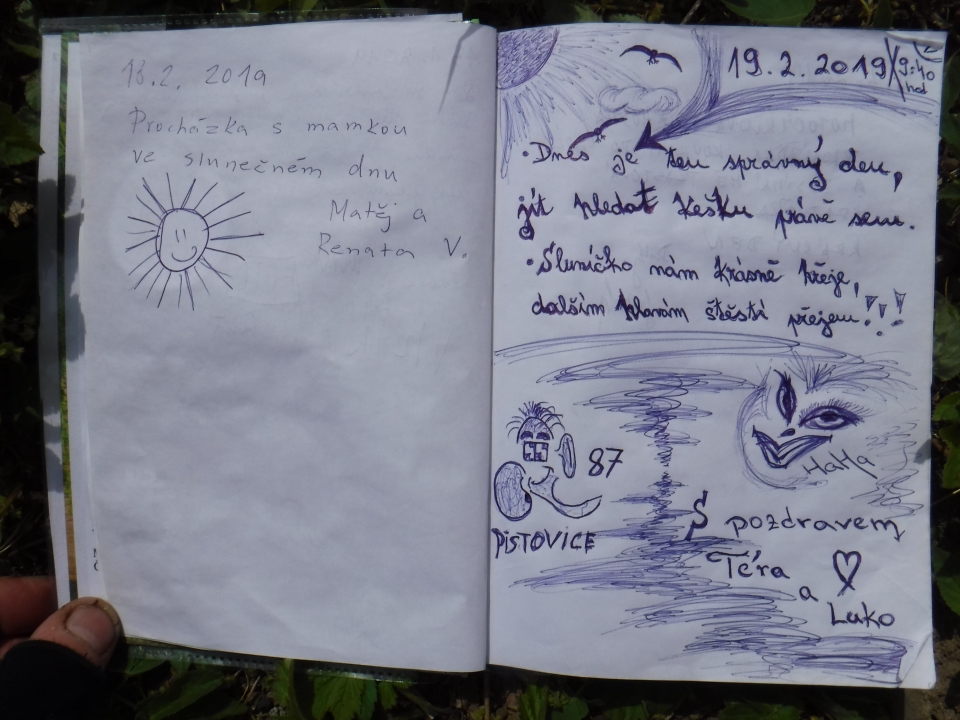 18.2. 2019
Procházka s mamkou
ve slunečném dnu
Matěj a
Renata V.
19.2.2019 9:40
hod
• Dnes je ten správný den,
jít hledat Kešku právě sem.
• Sluníčko nám krásně hřeje,
dalším hlavám štěstí přejem!!!
HaHa
87
PISTOVICE
S pozdravem
Téra
a
Luko